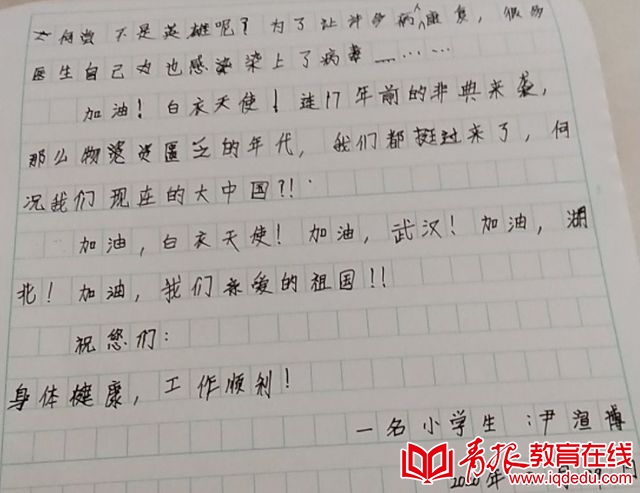 何尝不是英雄呢？为了让许多病人康复，很多
医生自己也感染上了病毒………
加油！白衣天使！连17年前的非典来袭，
那么物资匮乏的年代，我们都挺过来了，何
况我们现在的大中国？！
加油，白衣天使！加油，武汉！加油，湖
北！加油，我们亲爱的祖国！！
祝您们：
身体健康，工作顺利！
一名小学生：尹渲博
2020年
青报教育在线
www.iqdedu.com